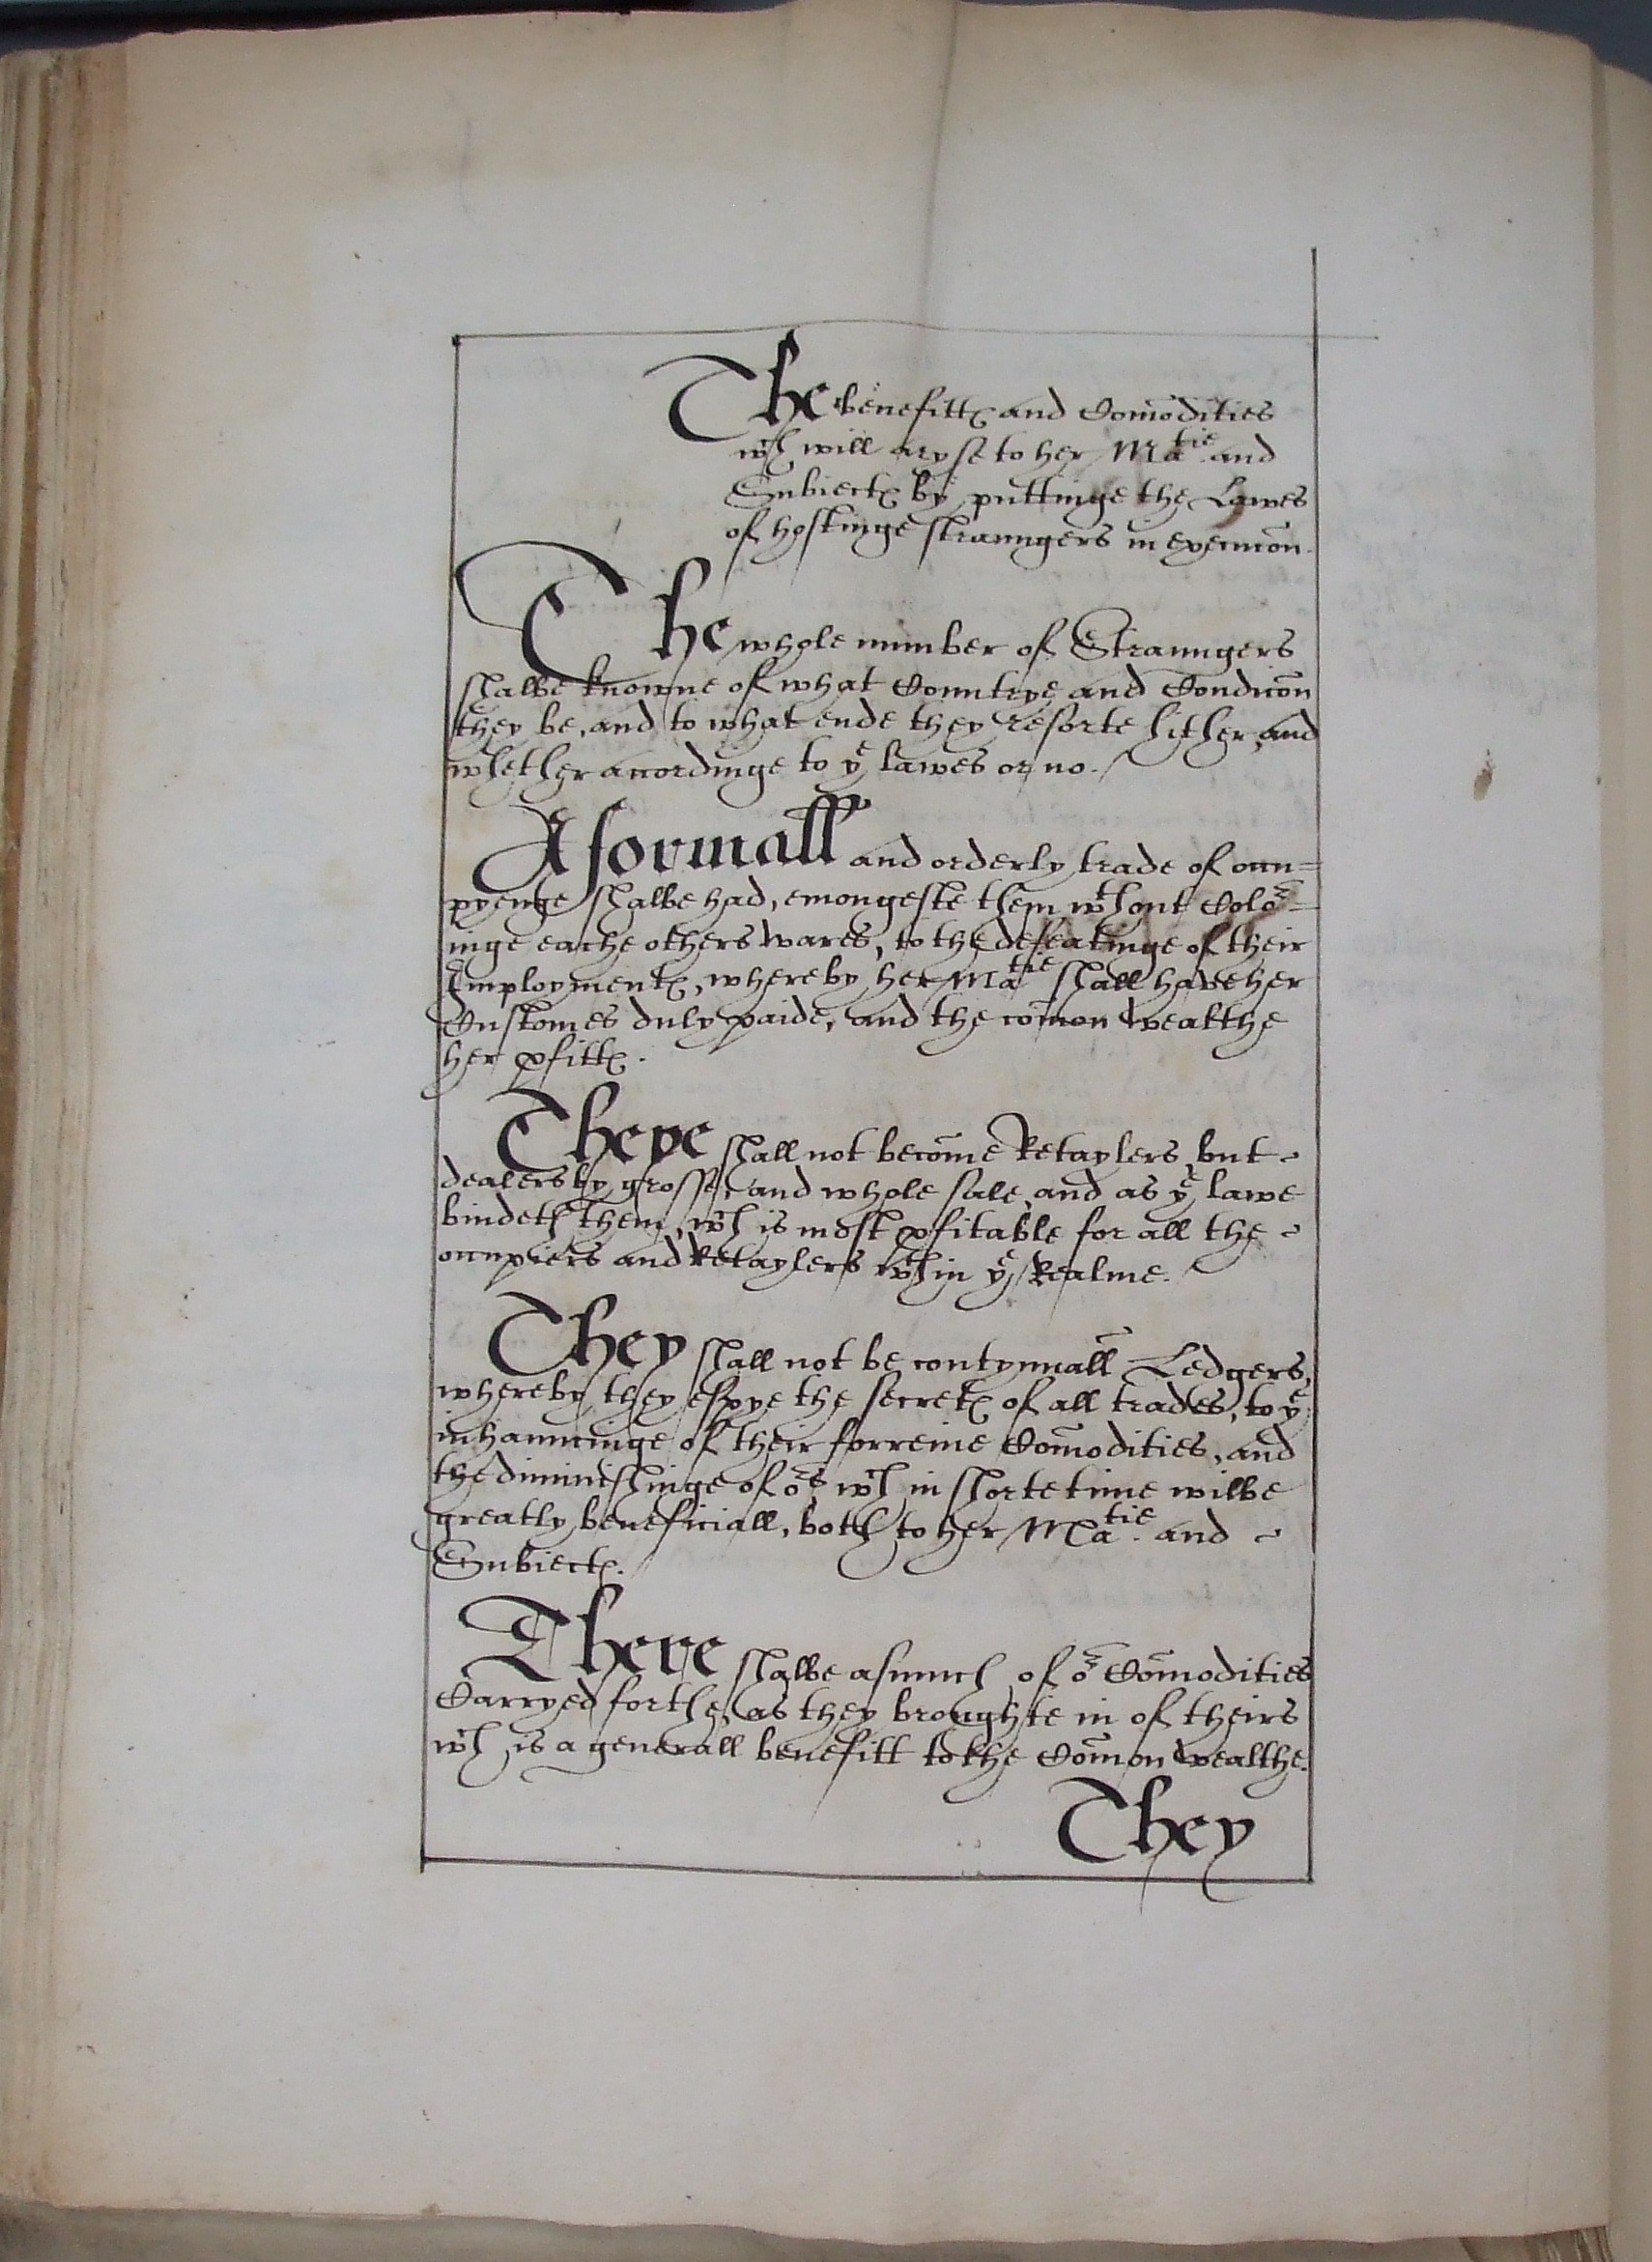 The benefitt℮ and Com̄odities
wᶜʰ will aryse to her Maᵗⁱᵉ and
Subiect℮ by puttinge the Lawes
of hostinge straungers in execuc̄on.
The whole number of Straungers
shalbe knowne of what Countrye and Condic̄on
they be, and to what ende they resorte hither, and
whether accordinge to yᵉ lawes or no.
A formall and orderly trade of occu=
pyenge shalbe had, emongeste them wᵗʰout Coloʳ=
inge eache others wares, to the defeatinge of their
Imployment℮, whereby her Maᵗⁱᵉ shall have her
Customes duly paide, and the com̄on wealthe
her ꝓfitt℮.
There shall not become Retaylers, but
dealers by grosse, and whole sale, and as yᵉ lawe
bindeth them, wᶜʰ is most ꝓfitable for all the
occupiers and Retaylers wᵗʰin yᵉ Realme.
They shall not be contynuall Ledgers,
whereby they espye the secret℮ of all trades, to yᵉ
inhauncinge of their forreine Com̄odities, and
the diminishinge of oʳˢ wᶜʰ in shorte time wilbe
greatly beneficiall, both to her Maᵗⁱᵉ. and
Subiect℮.
There shalbe asmuch of oʳ Com̄odities
Carryed forthe, as they broughte in of theirs
wᶜʰ is a generall benefitt to the Com̄on wealthe.
They